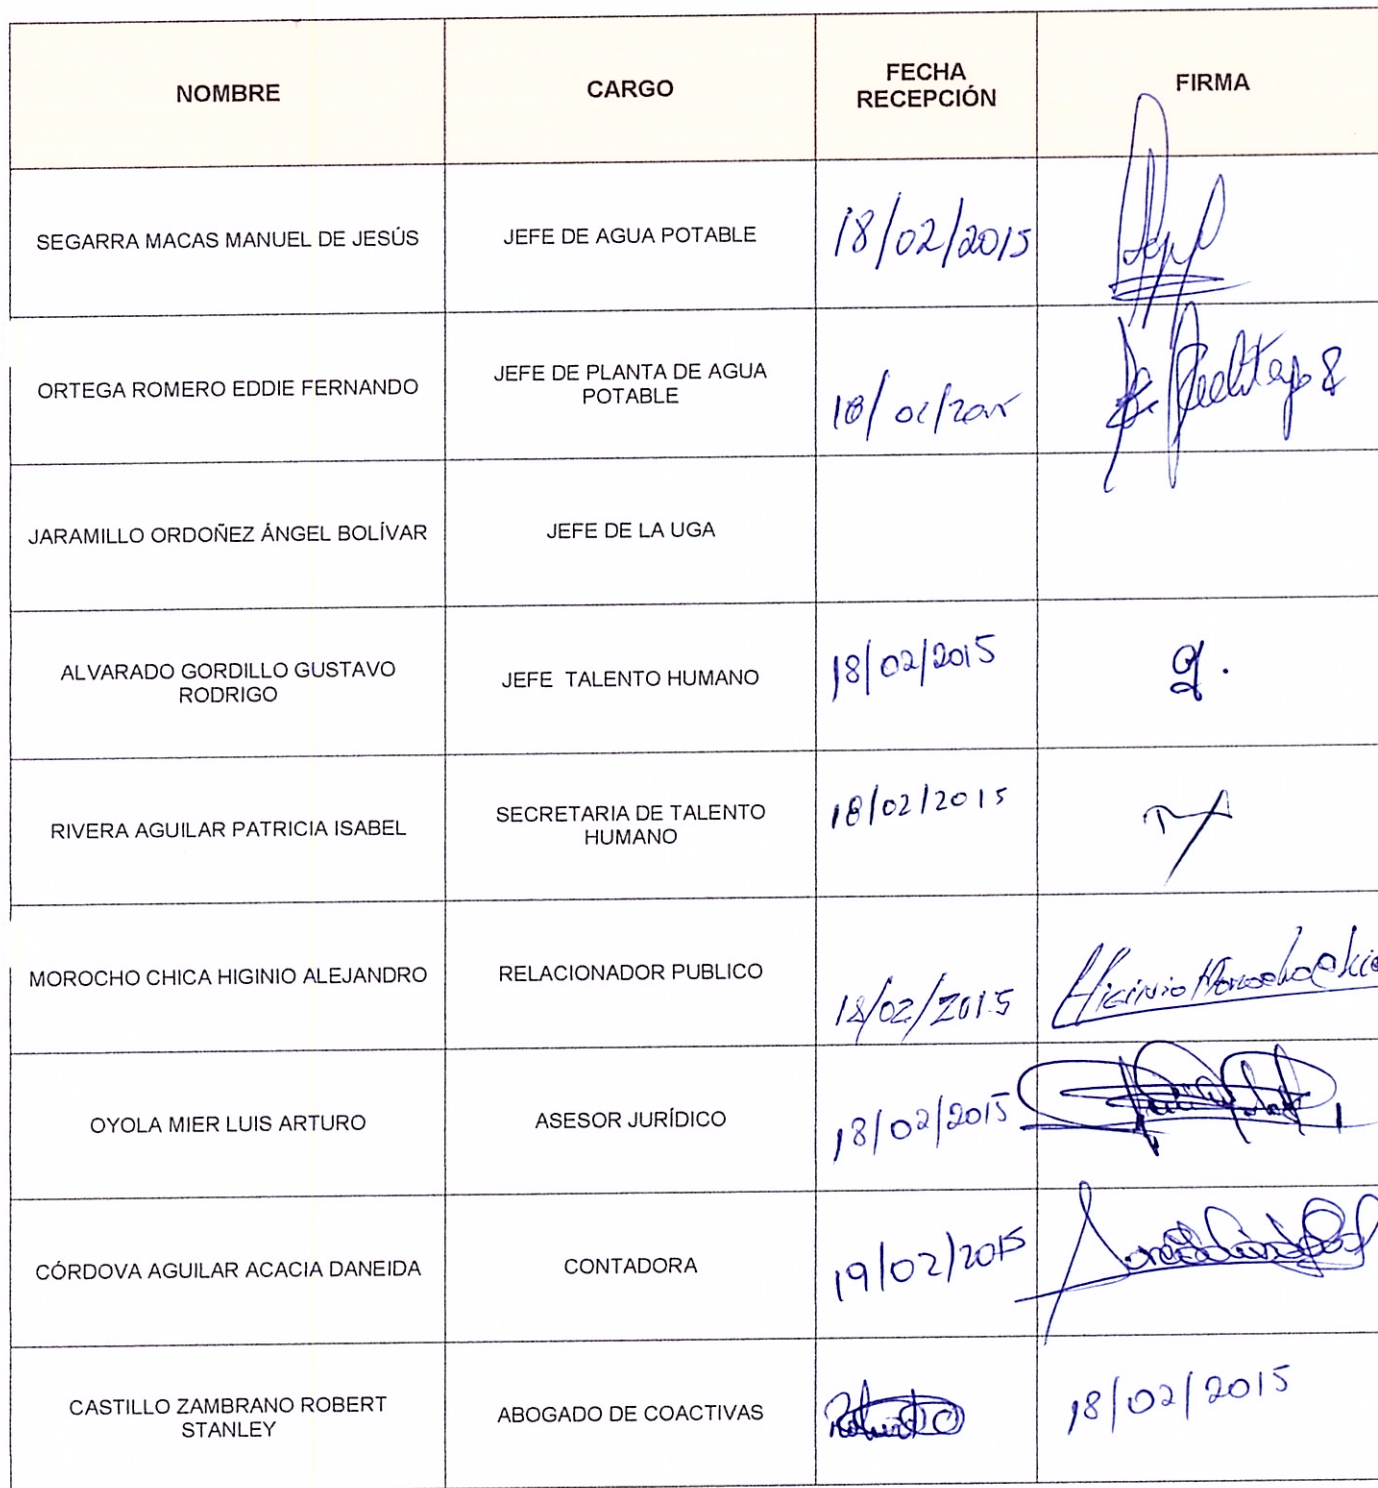 NOMBRE
CARGO
FECHA
RECEPCIÓN
FIRMA
SEGARRA MACAS MANUEL DE JESÚS
JEFE DE AGUA POTABLE
18/02/2015
ORTEGA ROMERO EDDIE FERNANDO
JEFE DE PLANTA DE AGUA
POTABLE
JARAMILLO ORDOÑEZ ÁNGEL BOLÍVAR
JEFE DE LA UGA
ALVARADO GORDILLO GUSTAVO
RODRIGO
JEFE TALENTO HUMANO
18/02/2015
RIVERA AGUILAR PATRICIA ISABEL
SECRETARIA DE TALENTO
HUMANO
18/02/2015
MOROCHO CHICA HIGINIO ALEJANDRO
RELACIONADOR PUBLICO
18/02/2015
OYOLA MIER LUIS ARTURO
ASESOR JURÍDICO
18/02/2015
CÓRDOVA AGUILAR ACACIA DANEIDA
CONTADORA
19/02/2015
CASTILLO ZAMBRANO ROBERT
STANLEY
ABOGADO DE COACTIVAS
18/02/2015